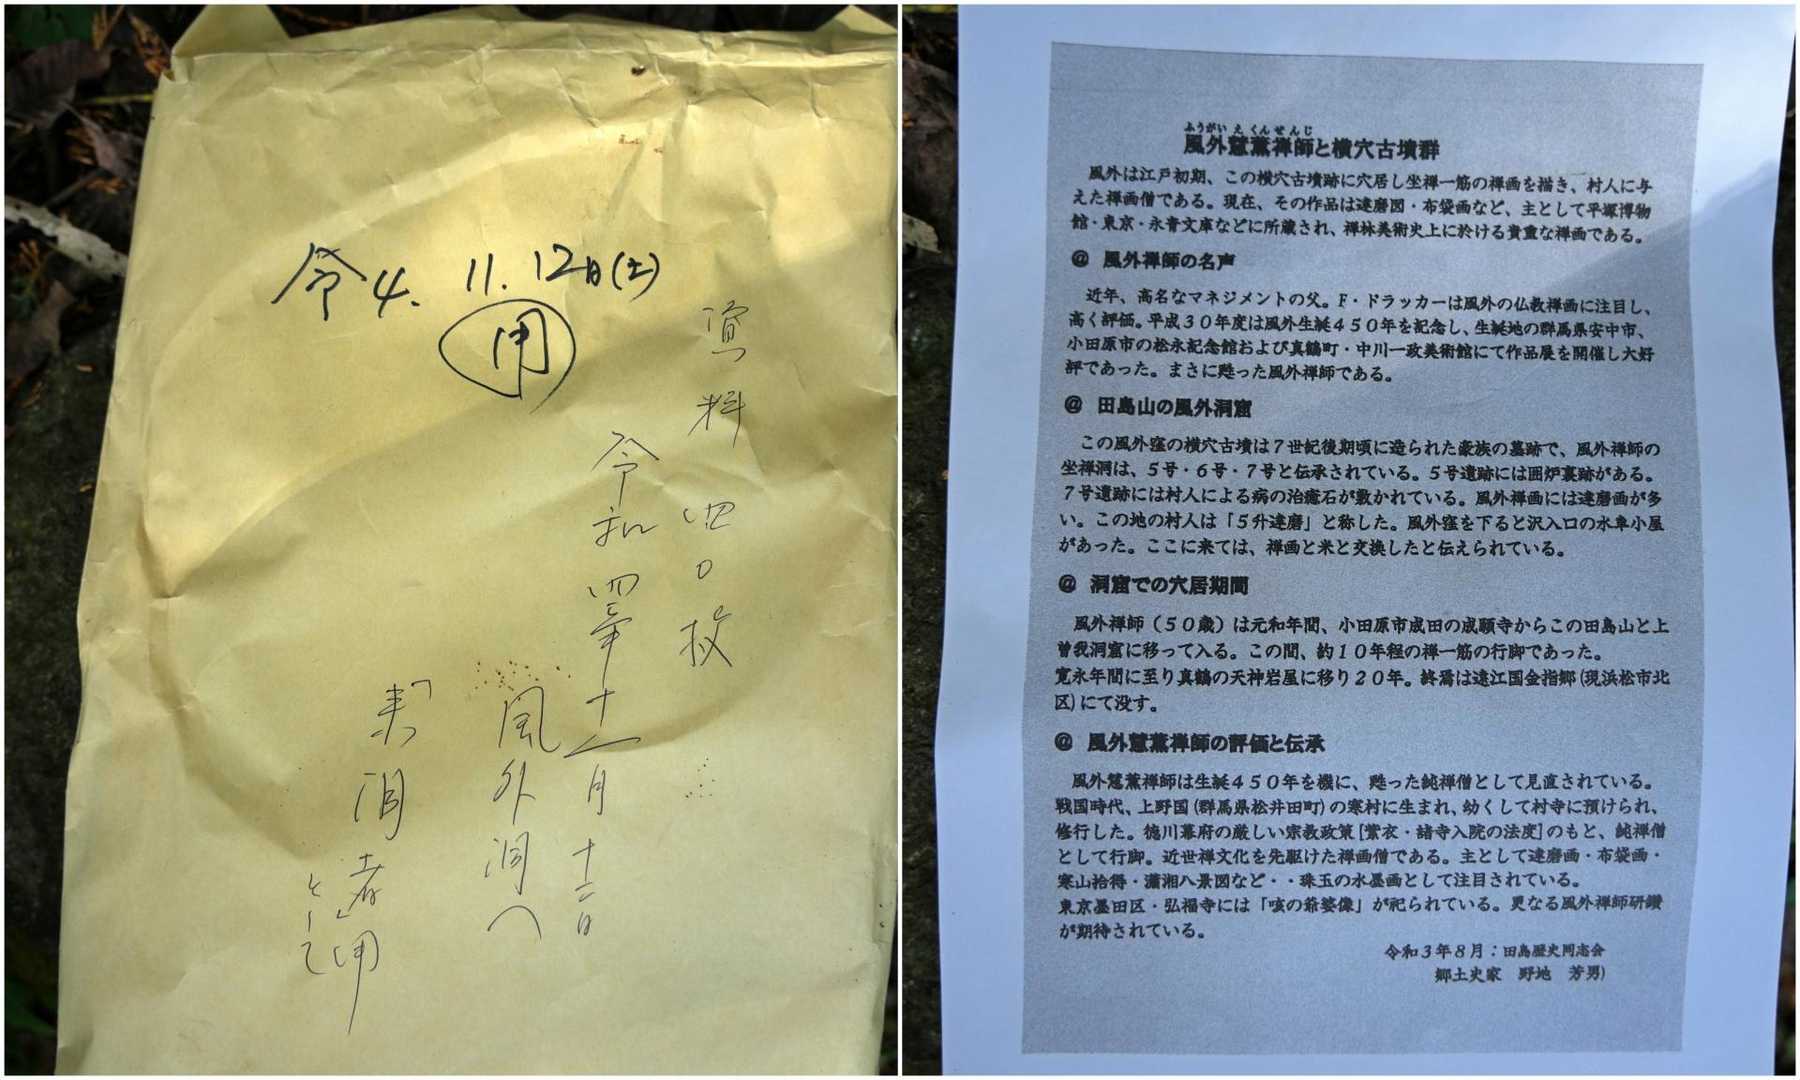 令4. 11. 12日(土)
用
資料 四〇枚
令和四年十一月十二日
風外洞へ
「来洞者」用
として
ふうがいえくんぜんじ
風外慧薫禅師と横穴古墳群
風外は江戸初期、この横穴古墳跡に穴居し坐禅一筋の禅画を描き、村人に与
えた禅画僧である。現在、その作品は達磨図・布袋画など、主として平塚博物
館・東京・永青文庫などに所蔵され、禅林美術史上に於ける貴重な禅画である。
@ 風外禅師の名声
近年、高名なマネジメントの父。F・ドラッカーは風外の仏教禅画に注目し、
高く評価。平成30年度は風外生誕450年を記念し、生誕地の群馬県安中市、
小田原市の松永記念館および真鶴町・中川一政美術館にて作品展を開催し大好
評であった。まさに甦った風外禅師である。
@ 田島山の風外洞窟
この風外窪の横穴古墳は7世紀後期頃に造られた豪族の墓跡で、風外禅師の
坐禅洞は、5号・6号・7号と伝承されている。5号遺跡には囲炉裏跡がある。
7号遺跡には村人による病の治癒石が敷かれている。風外禅画には達磨画が多
い。この地の村人は「5升達磨」と称した。風外窪を下ると沢入口の水車小屋
があった。ここに来ては、禅画と米と交換したと伝えられている。
@ 洞窟での穴居期間
風外禅師（50歳）は元和年間、小田原市成田の成願寺からこの田島山と上
曽我洞窟に移って入る。この間、約10年程の禅一筋の行脚であった。
寛永年間に至り真鶴の天神岩屋に移り20年。終焉は遠江国金指郷(現浜松市北
区)にて没す。
@ 風外慧薫禅師の評価と伝承
風外慧薫禅師は生誕450年を機に、甦った純禅僧として見直されている。
戦国時代、上野国(群馬県松井田町)の寒村に生まれ、幼くして村寺に預けられ、
修行した。徳川幕府の厳しい宗教政策[紫衣・諸寺入院の法度]のもと、純禅僧
として行脚。近世禅文化を先駆けた禅画僧である。主として達磨画・布袋画・
寒山拾得・瀟湘八景図など・・珠玉の水墨画として注目されている。
東京墨田区・弘福寺には「咳の爺婆像」が祀られている。更なる風外禅師研鑽
が期待されている。
令和3年8月：田島歴史同志会
郷土史家 野地 芳男)